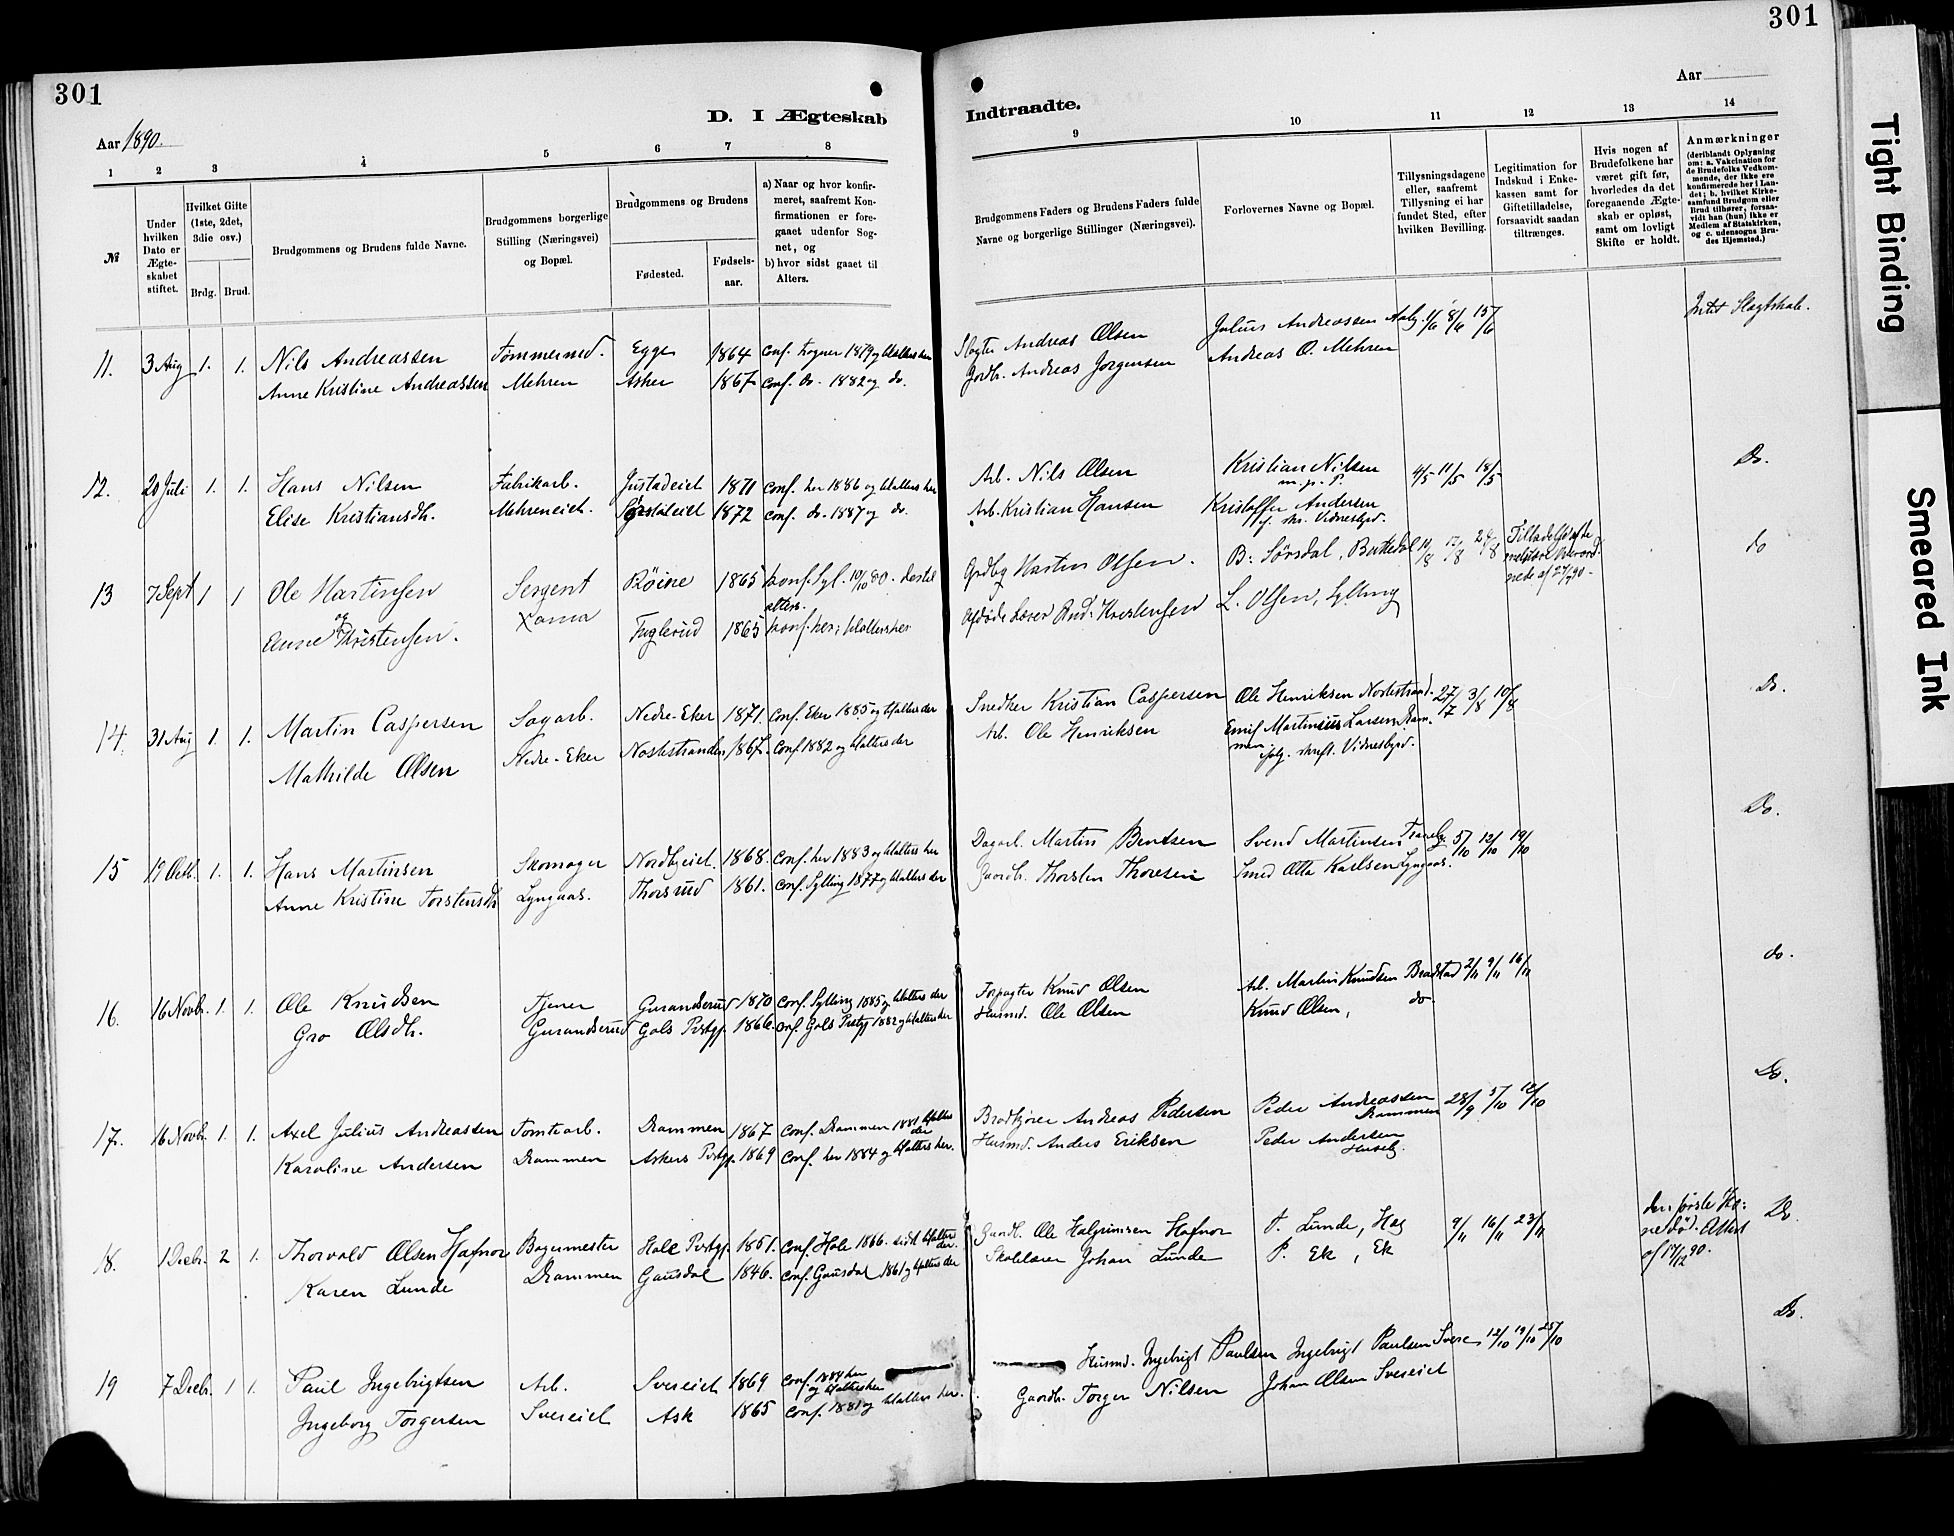 301
301
Aar 1890.
D. I Ægteskab
Indtraadte.
Aar
1 2 3 4 5 6 7 8 9 10 11 12 13 14
№
Under hvilken Dato er Ægteskabet stiftet.
Hvilket Gifte (1ste, 2det, 3die osv.)
Brdg. Brud.
Brudgommens og Brudens fulde Navne.
Brudgommens borgerlige Stilling (Næringsvei) og Bopæl.
Brudgommens og Brudens
Fødested.
Fødselsaar.
a) Naar og hvor konfirmeret, saafremt Konfirmationen er foregaaet udenfor Sognet, og
b) hvor sidst gaaet til Alters.
Brudgommens Faders og Brudens Faders fulde Navne og borgerlige Stillinger (Næringsvei).
Forlovernes Navne og Bopæl.
Tillysningsdagene eller, saafremt Tillysning ei har fundet Sted, efter hvilken Bevilling.
Legitimation for Indskud i Enkekassen samt for Giftetilladelse, forsaavidt saadan tiltrænges.
Hvis nogen af Brudefolkene har været gift før, hvorledes da det foregaaende Ægteskab er opløst, samt om lovligt Skifte er holdt.
Anmærkninger
(deriblandt Oplysning om: a. Vakcination for de Brudefolks Vedkommende, der ikke ere konfirmerede her i Landet; b. hvilket Kirkesamfund Brudgom eller Brud tilhører, forsaavidt han (hun) ikke er Medlem af Statskirken, og c. udensogns Brudes Hjemsted.)
11. 3 Aug 1. 1. Nils Andreassen Tømmermd. Egge 1864 Slagter Andreas Olsen Julius Andreassen 1/6 8/6 15/6 Intet Slægtskab.
Anne Kristine Andreassen Mehren Asker 1867 conf. do. 1882 og do. Gdbr. Andreas Jørgensen Andreas O. Mehren
12. 20 Juli 1. 1. Hans Nilsen Fabrikarb. Justadeiet 1871 conf. her 1886 og tilalters her Arb. Nils Olsen Kristian Nilsen 4/5 11/5 18/5 Do.
m. p. P.
Elise Kristiansdt. Mehreneiet. 1872 conf. do. 1887 og do. Arb. Kristian Hansen Kristoffer Andersen
Vidnesbyrd.
13 7 Sept 1 1 Ole Martinsen Sergent Röine 1865 Grdbr Martin Olsen. B. Sørsdal, 24/8 do
og
Anne Kristensen. Fuglerud 1865 konf. her; tilalters her L. Olsen, Sylling
14. 31 Aug 1. 1. Martin Caspersen Sagarb. Nedre-Eker 1871. conf. Eker 1885 og tilalters der Snedker Kristian Caspersen Ole Henriksen 27/7 3/8 10/8 Do.
Mathilde Olsen Nedre-Eker 1867. conf 1882 og tilalters der Arb. Ole Henriksen Larsen
Vidnesbyrd.
15 19 Octb. 1. 1. Hans Martinsen Skomager Nordbyeiet. 1868. conf. her 1883 og tilalters her Dagarb. Martin Bentsen Svend Martinsen 5/10 12/10 19/10 Do.
Anne Kristine Torstensdt. Lyngaas. Thorsrud 1861. conf. Sylling 1877 og tilalters der Gaardbr. Thorsten Thoresen Smed Otto Karlsen Lyngaas.
16. 16 Novbr. 1. 1. Ole Knudsen Tjener Gurandsrud 1870 conf. Sylling 1885 og tilalters der Forpagter Knud Olsen Arb. Martin Knudsen 2/11 9/11 16/11 do.
Gro Olsdt. Gurandsrud Gols Prstgj. 1866. conf. Gols Prstgj 1882 og tilalters her Husmd. Ole Olsen Knud Olsen, do.
17. 16 Novbr. 1. 1. Axel Julius Andreassen Tomtearb. Drammen 1867 conf. Drammen 1881 tilalters der Brødkjører Andreas Pedersen Peder Andreassen Drammen 28/9 5/10 12/10 Do.
Karoline Andersen Drammen Askers Prstgj. 1869 conf. her 1884 og tilalters her. Husmd. Anders Eriksen Peder Andersen
18. 1 Decbr. 2 1. Thorvald Olsen Hafnor Bagermester Hole Prstgj. 1851. conf. Hole 1866. sidst tilalters der. Gaardb. Ole Halgrimsen Hafnor P. Lunde, Hag 9/11 16/11 23/11 den første Kone død. Attest af Do.
Karen Lunde Drammen Gausdal 1846. conf. Gausdal 1861 og tilalters der Skolelærer Johan Lunde P. Ek, Ek
19 7 Decbr. 1 1. Paul Ingebrigtsen Arb. Svereiet 1869 conf. 1884 her og tilalters her Husmd. Ingebrigt Paulsen Ingebrigt Paulsen Svere 12/10 19/10 25/10 Do.
Ingeborg Torgersen Svereiet Ask 1865 conf. 1881 og tilalters her. Gaardbr. Torger Nilsen Johan Olsen Svereiet
Tight Binding
Smeared Ink